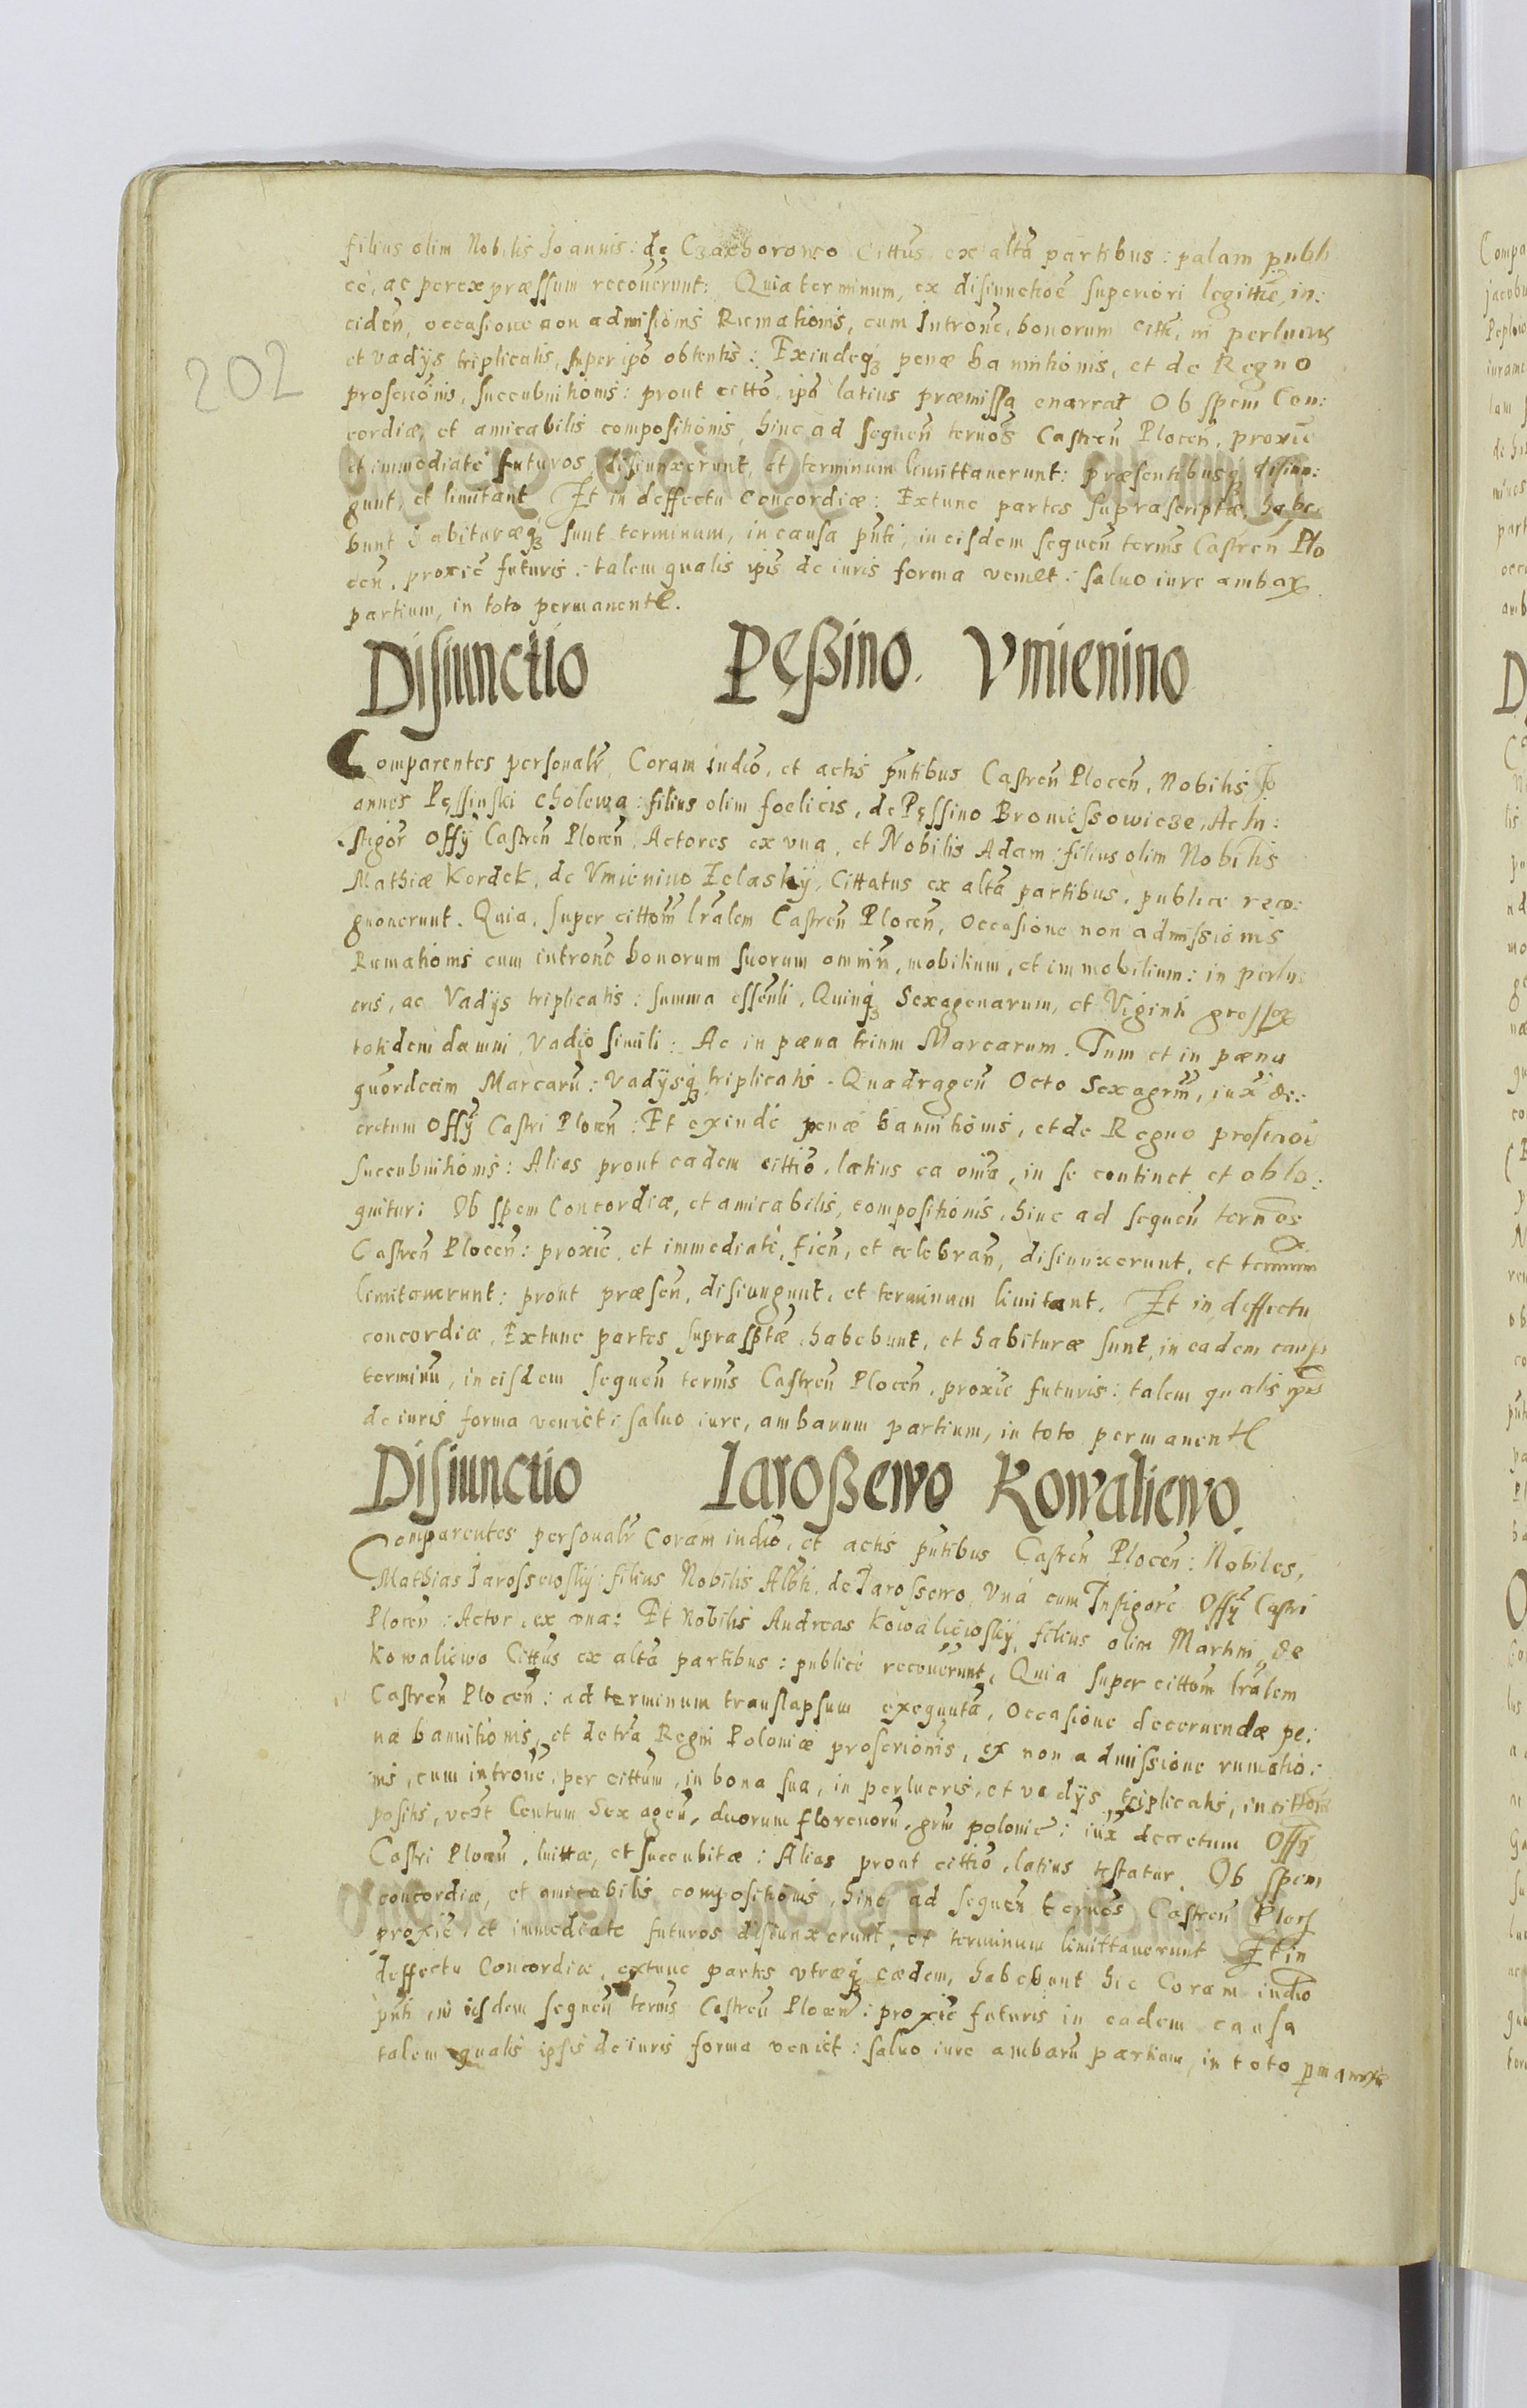 202
filius olim Nobilis Joannis: de Czachorowo Cittus ex altã partibus: palam publi
cè, ac per expræssum recoverunt: Quia terminum, ex disiunctioẽ superiori legittiẽ, in:
ciden, occasione non admisiõnis Rumationis, cum Intronẽ, bonorum citti, in perlucris
et vadÿs triplicatis, super ipõ obtentis: Exindeqȝ penæ bannitionis, et de Regno
proscriõnis, succubuitionis: prout cittõ, ipã latius præmissa enarrat Ob spem Con:
cordiæ, et amicabilis compositionis, hinc ad sequeñ ternõs Castreñ Plocen, proxiẽ
et immediatè futuros, disiunxerunt, et terminum limittaverunt: præsentibusqȝ disiun:
gunt, et limitant Et in deffectu Concordiæ: Extunc partes suprascriptæ, habe:
bunt habituræqȝ sunt terminum, in causa pñti, in eisdem sequeñ termĩs Castreñ Plo
cen, proxiẽ futuris: talem qualis ipĩs de iuris forma veniet: saluo iure ambaȝ
partium, in toto permanente.
Disiunctio Pęßino. Vmienino
Comparentes personalr̃ Coram iudiõ, et actis pñtibus Castreñ Ploceñ, Nobilis Jo
annes Pęssinski cholewa: filius olim foelicis, de Pęssino Broniessowicze, Ac In:
stigor Offÿ Castreñ Ploceñ, Actores ex vna, et Nobilis Adam: filius olim Nobilis
Mathiæ Kordek, de Vmienino Zelaskÿ, Cittatus ex altã partibus, publice reco:
gnoverunt. Quia, super cittom̃ lr̃alem Castreñ Ploceñ, Occasione non admissionis
Rumationis cum intronẽ bonorum suorum omniñ, mobilium, et immobilium: in perlu:
cris, ac Vadÿs triplicatis: summa essenli, Quinqȝ Sexagenarum, et Viginti grossoȝ
totidem damni, Vadio simili: Ac in pæna trium Marcarum. Tum et in pæna
quordecim Marcarũ: Vadÿsqȝ triplicatis. Quadrageñ Octo Sexagrm̃, iux̃ de:
cretum Offÿ Castri Ploceñ: Et exindè penæ bannitionis, et de Regno proscrioĩs
succubuitionis: Alias prout eadem cittiõ, latius ea omĩa, in se continet et oblo:
quitur: Ob spem Concordiæ, et amicabilis, compositionis, hinc ad sequeñ ternõs
Castreñ Ploceñ: proxiẽ, et immediatè, fien, et celebrañ, disiunxerunt, et terminum
limitaverunt: prout præseñ, disiungunt, et terminum limitant. Et in deffectu
concordiæ, Extunc partes suprasptæ habebunt, et habituræ sunt, in eadem causa
terminũ, in eisdem sequeñ termĩs Castreñ Ploceñ, proxiẽ futuris: talem qualis ipĩs
de iuris forma veniet: saluo iure, ambarum partium, in toto permanente
Disiunctio Iaroßewo Kowaliewo.
Comparentes personalr̃ Coram iudiõ, et actis pñtibus Castreñ Ploceñ: Nobiles,
Mathias Jarossewskÿ: filius Nobilis Albti, de Jarossewo, Vnà cum Instigorẽ Offÿ Castri
Ploceñ: Actor, ex vna: Et Nobilis Andreas Kowaliewskÿ, filius olim Martini, de
Kowaliewo Cittus ex altã partibus: publicè recoverunt, Quia super cittom̃ lr̃alem
Castreñ Ploceñ: ad terminum translapsum exequutã, Occasione decernendæ pe:
næ bannitionis, et de tra Regni Poloniæ proscrionis, ex non admissione rumatio:
nis, cum intronẽ, per cittum, in bona sua, in perlucris, et vadÿs triplicatis, in cittom̃
positis, Centum Sexageñ, duorum florenorũ, grm̃ polonic: iux̃ decretum Offÿ
Castri Ploceñ, luittæ, et succubitæ: Alias prout cittiõ, latius testatur. Ob spem
concordiæ, et amicabilis compositionis, hinc ad sequen ternõs Castreñ Plocen
proxiẽ, et immediate futuros disiunxerunt, et terminum limittaverunt Et in
deffectu Concordiæ, extunc partes vtræqȝ eædem, habebunt hic Coram iudiõ
pñti, in iisdem sequeñ termĩs Castreñ Ploceñ: proxiẽ futuris in eadem causa
talem qualis ipsis de iuris forma veniet: saluo iure ambarũ partium, in toto p̱manente